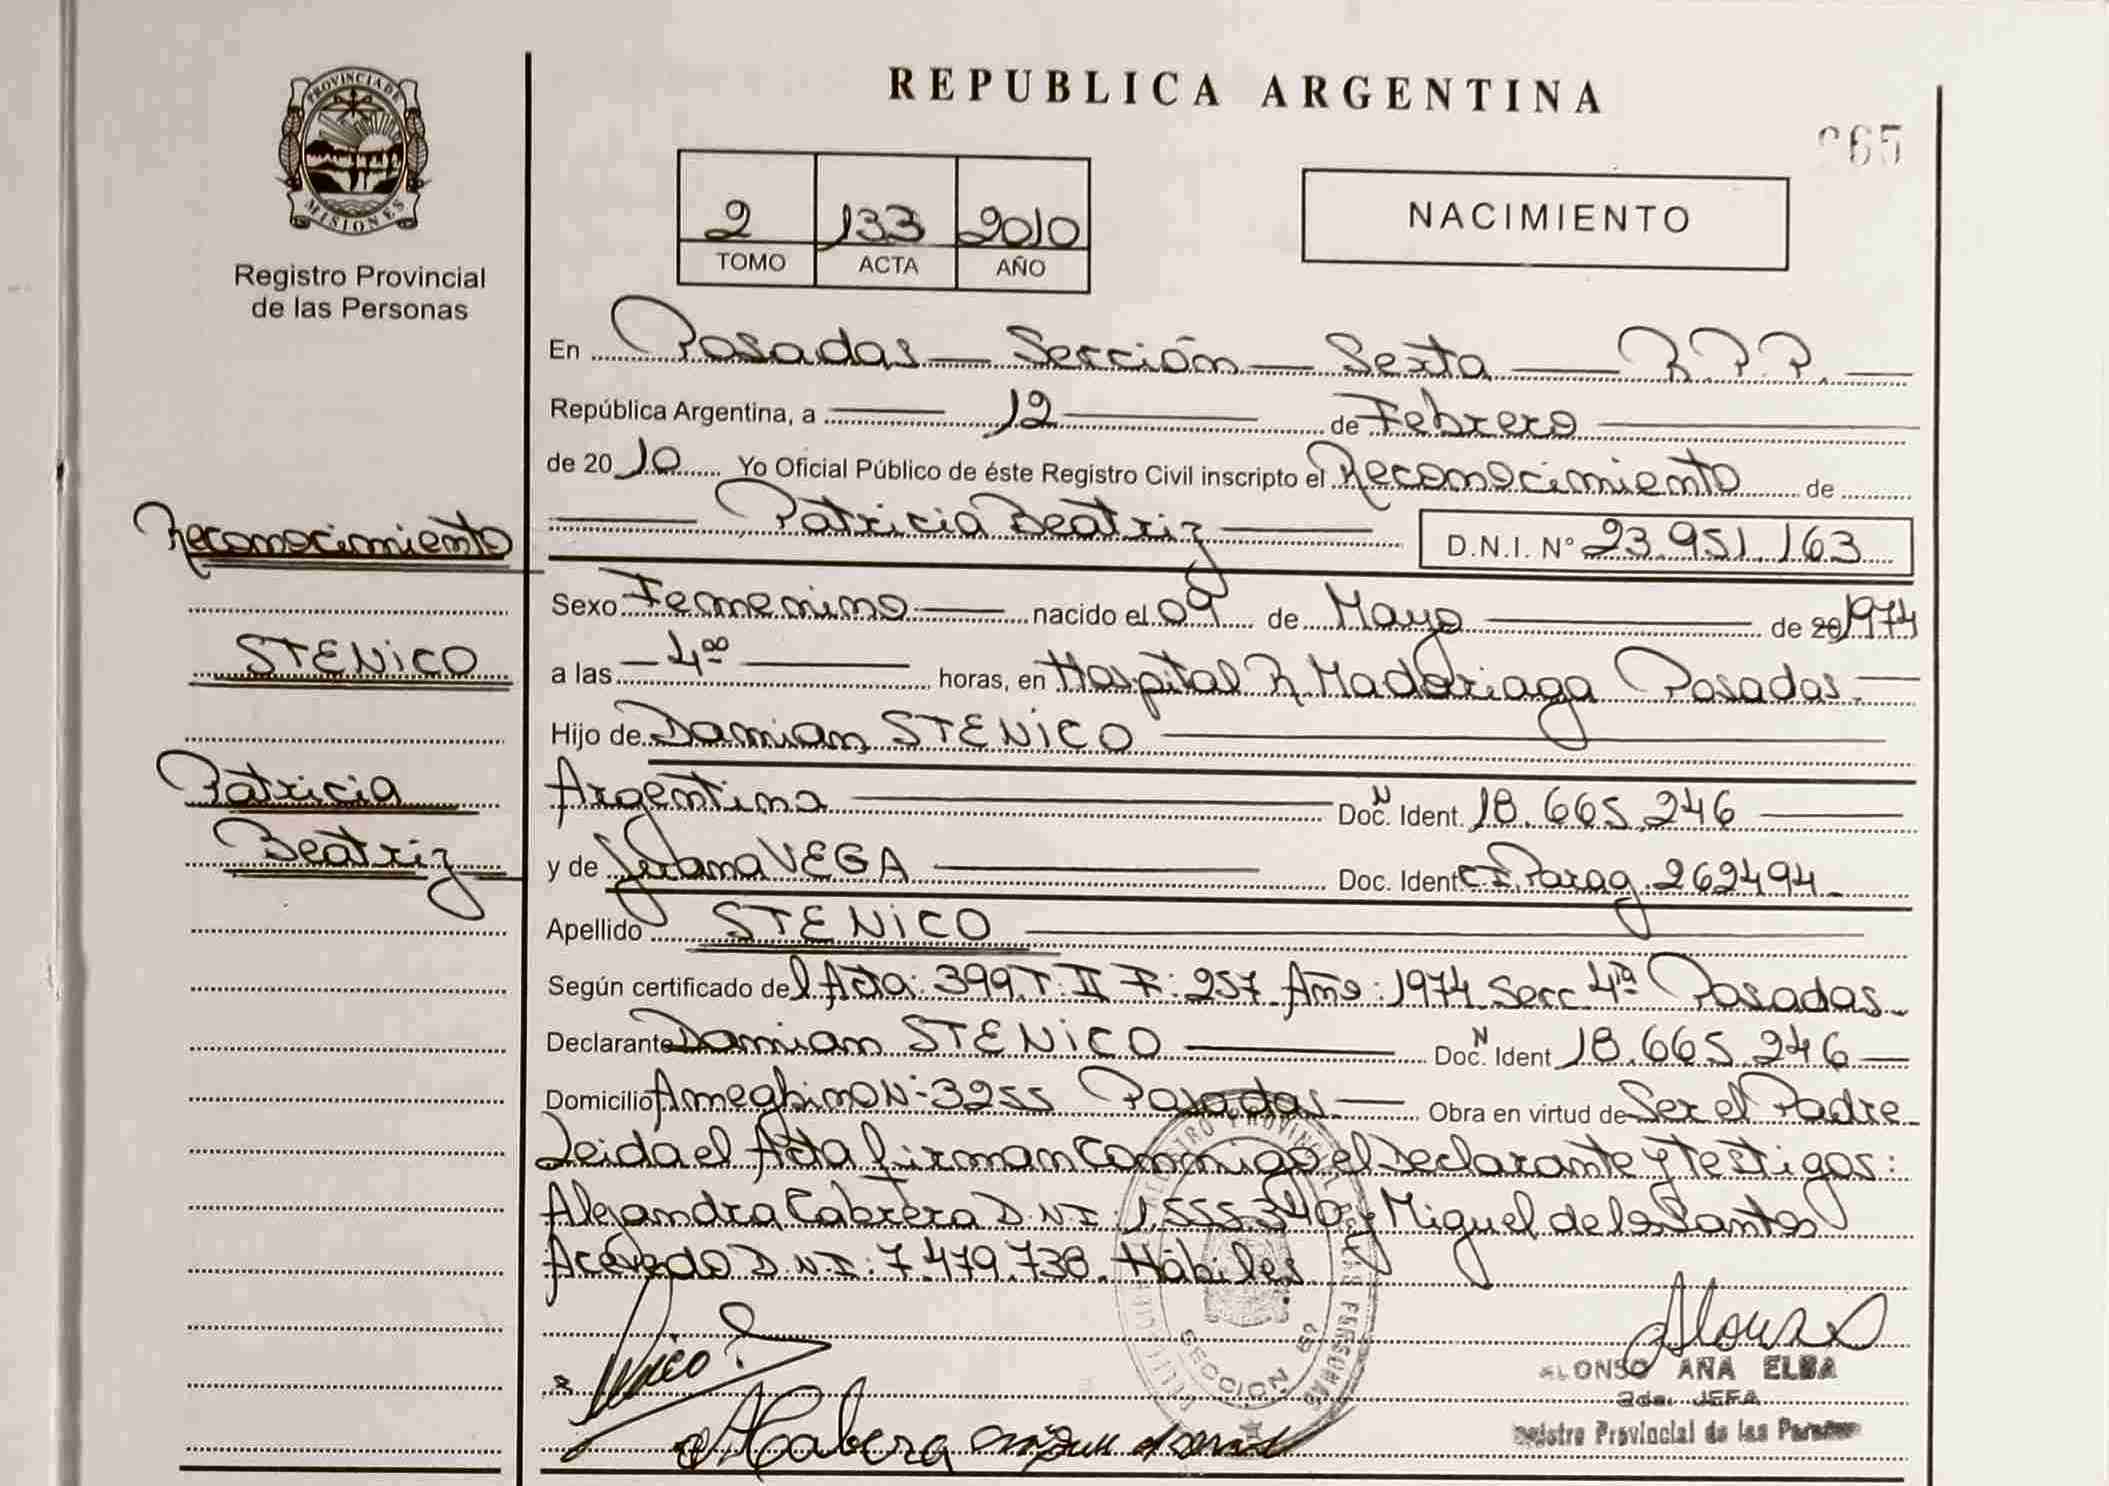 PROVINCIA DE
MISIONES
Registro Provincial
de las Personas
REPUBLICA ARGENTINA
065
2 133 2010
TOMO ACTA AÑO
NACIMIENTO
En Posadas — Sección — Sexta — R.P.P. —
República Argentina, a — 12 — de Febrero —
de 20 10 Yo Oficial Público de éste Registro Civil inscripto el Reconocimiento de
— Patricia Beatriz — D.N.I. N° 23.951.163
Reconocimiento
STENICO
Patricia
Beatriz
Sexo Femenino — nacido el 09 de Mayo — de 20 1974
a las — 4⁰⁰ — horas, en Hospital R. Madariaga Posadas. —
Hijo de Damian STENICO —
Argentino — Doc. N Ident. 18.665.246 —
y de VEGA — Doc. Ident C.I. Parag. 262494 —
Apellido STENICO —
Según certificado del Acta: 399. T: II F: 257 Año: 1974 Secc 4ta Posadas —
Declarante Damian STENICO — Doc. N Ident 18.665.246 —
Domicilio Ameghino N- 3255 Posadas — Obra en virtud de Ser el Padre
Leida el Acta firman Conmigo el Declarante y Testigos:
Alejandra Cabrera D.N.I: 1.555.340 y Miguel de los Santos
Acevedo D.N.I: 7.479.738. Hábiles
SECCION 6ª
ACabrera
Alonso
ALONSO ANA ELBA
2da. JEFA
Registro Provincial de las Personas